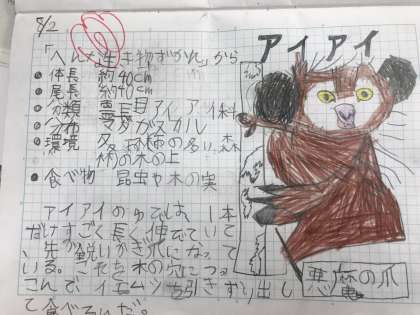 5/2
「へんな生き物ずかん」から
アイアイ
● 体長 約40cm
● 尾長 約40cm
● 分類 霊長目アイアイ科
● 分布 マダガスカル
● 環境 タ 種の多い森
林の木の上
● 食べ物 昆虫や木の実
アイアイのゆびは、1本
だけすごく長く伸びていて
、先が鋭いかぎ爪になって
いる。こたち木の穴につっ
こんで、イモムシを引きずり出し
て食べるんだ。
悪魔の爪